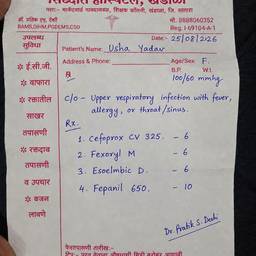 सिद्धनाथ हॉस्पिटल, खंडाळा
डॉ. प्रतिक एस. देशी
BAMS, DHM, PGDEMS, CSD
मो. 9881060352
Reg. I-69104-A-1
उपलब्ध
सुविधा
Date:- 25/08/2026
Patient's Name: Usha Yadav
Address & Phone:
Age/Sex F.
B.P. W.t.
100/60 mmhg
ई.सी.जी.
वाफारा
रक्तातील
साखर
तपासणी
रक्तदाब
तपासणी
व उपचार
वजन
लावणे
R
C/O - Upper respiratory infection with fever,
allergy, or throat/sinus.
Rx.
1. Cefoprox CV 325. - 6
2. Fexoryl M - 6
3. Esoelmbic D. - 6
4. Fepanil 650. - 10
Dr. Pratik S. Deshi
फेरतपासणी तारीख:-